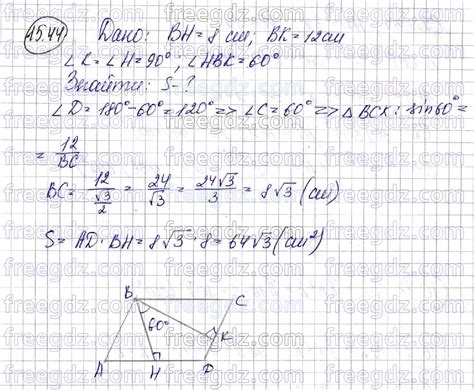 15.44 Дано: BH = 8 см; BK = 12 см
∠K = ∠H = 90°; ∠HBK = 60°
Знайти: S - ?
∠D = 180° - 60° = 120° => ∠C = 60° => △BCK: sin60° =
= 12/BC
BC = 12/(√3/2) = 24/√3 = 24√3/3 = 8√3 (см)
S = AD · BH = 8√3 · 8 = 64√3 (см²)
B C
60° K
A H D
freegdz.com